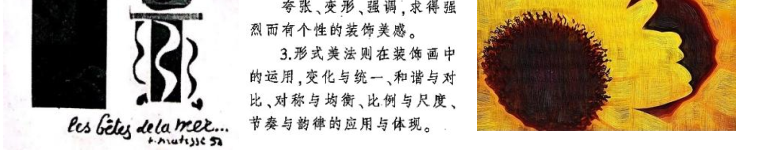 夸张、变形、强调,求得强
烈而有个性的装饰美感。
3.形式美法则在装饰画中
的运用,变化与统一、和谐与对
比、对称与均衡、比例与尺度、
节奏与韵律的应用与体现。
les bêtes de la mer...
h. matisse 50